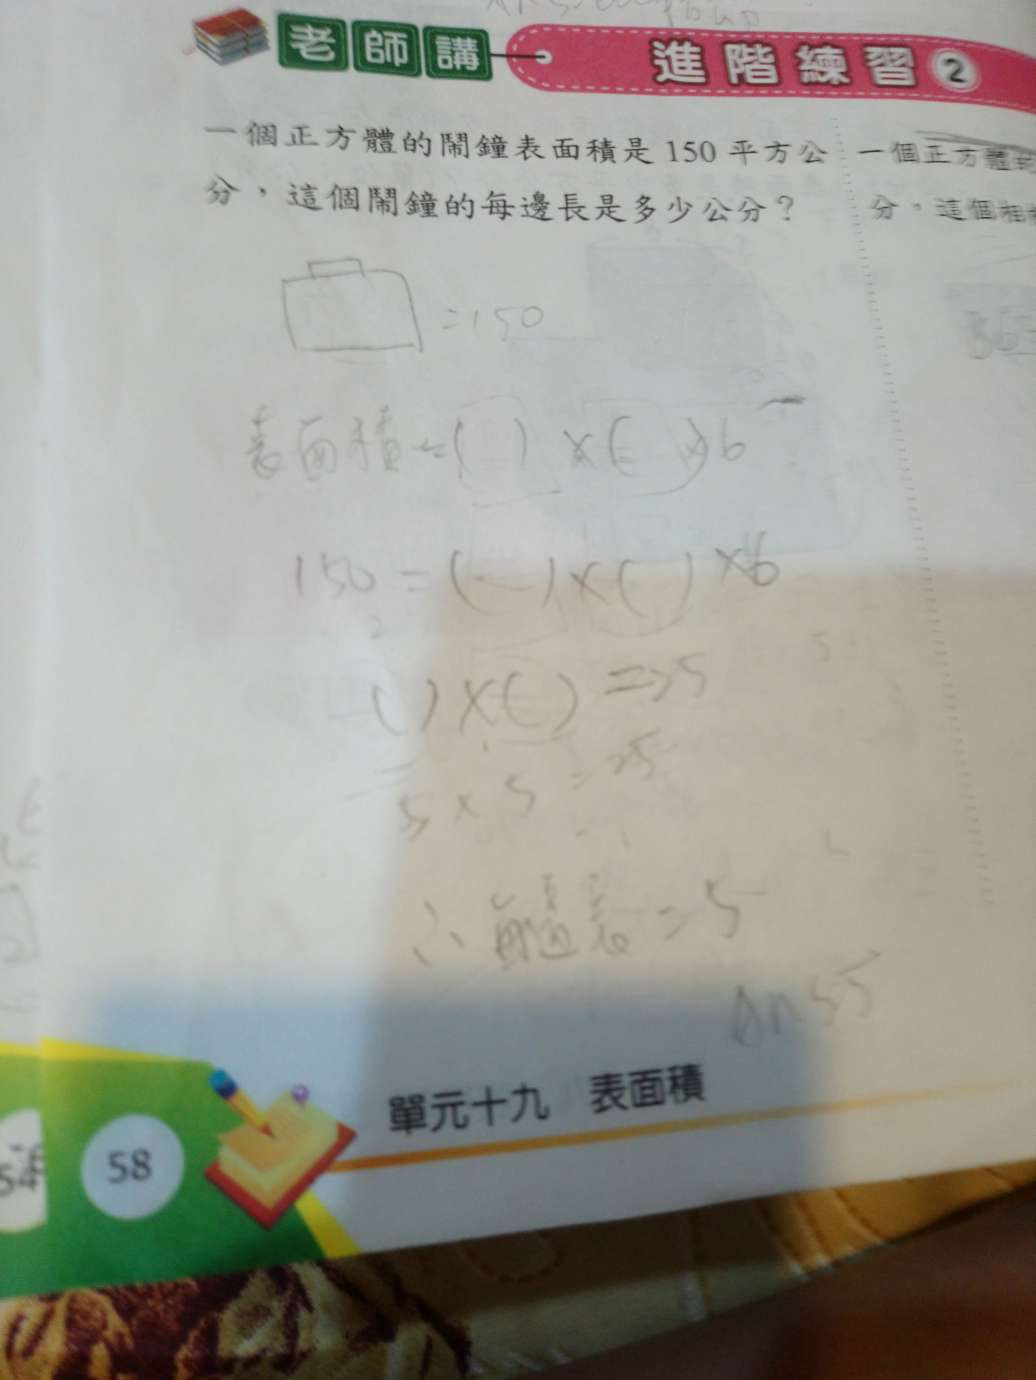 老師講
進階練習 2
一個正方體的鬧鐘表面積是 150 平方公
分，這個鬧鐘的每邊長是多少公分？
一個正方體
分。這個相
=150
表面積=( )×( )×6
150=( )×( )×6
( )×( )=25
5×5=25
=5
Ans5
單元十九 表面積
58